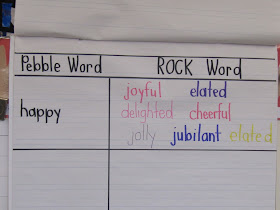 Pebble Word ROCK Word
joyful elated
delighted cheerful
happy
jolly jubilant elated